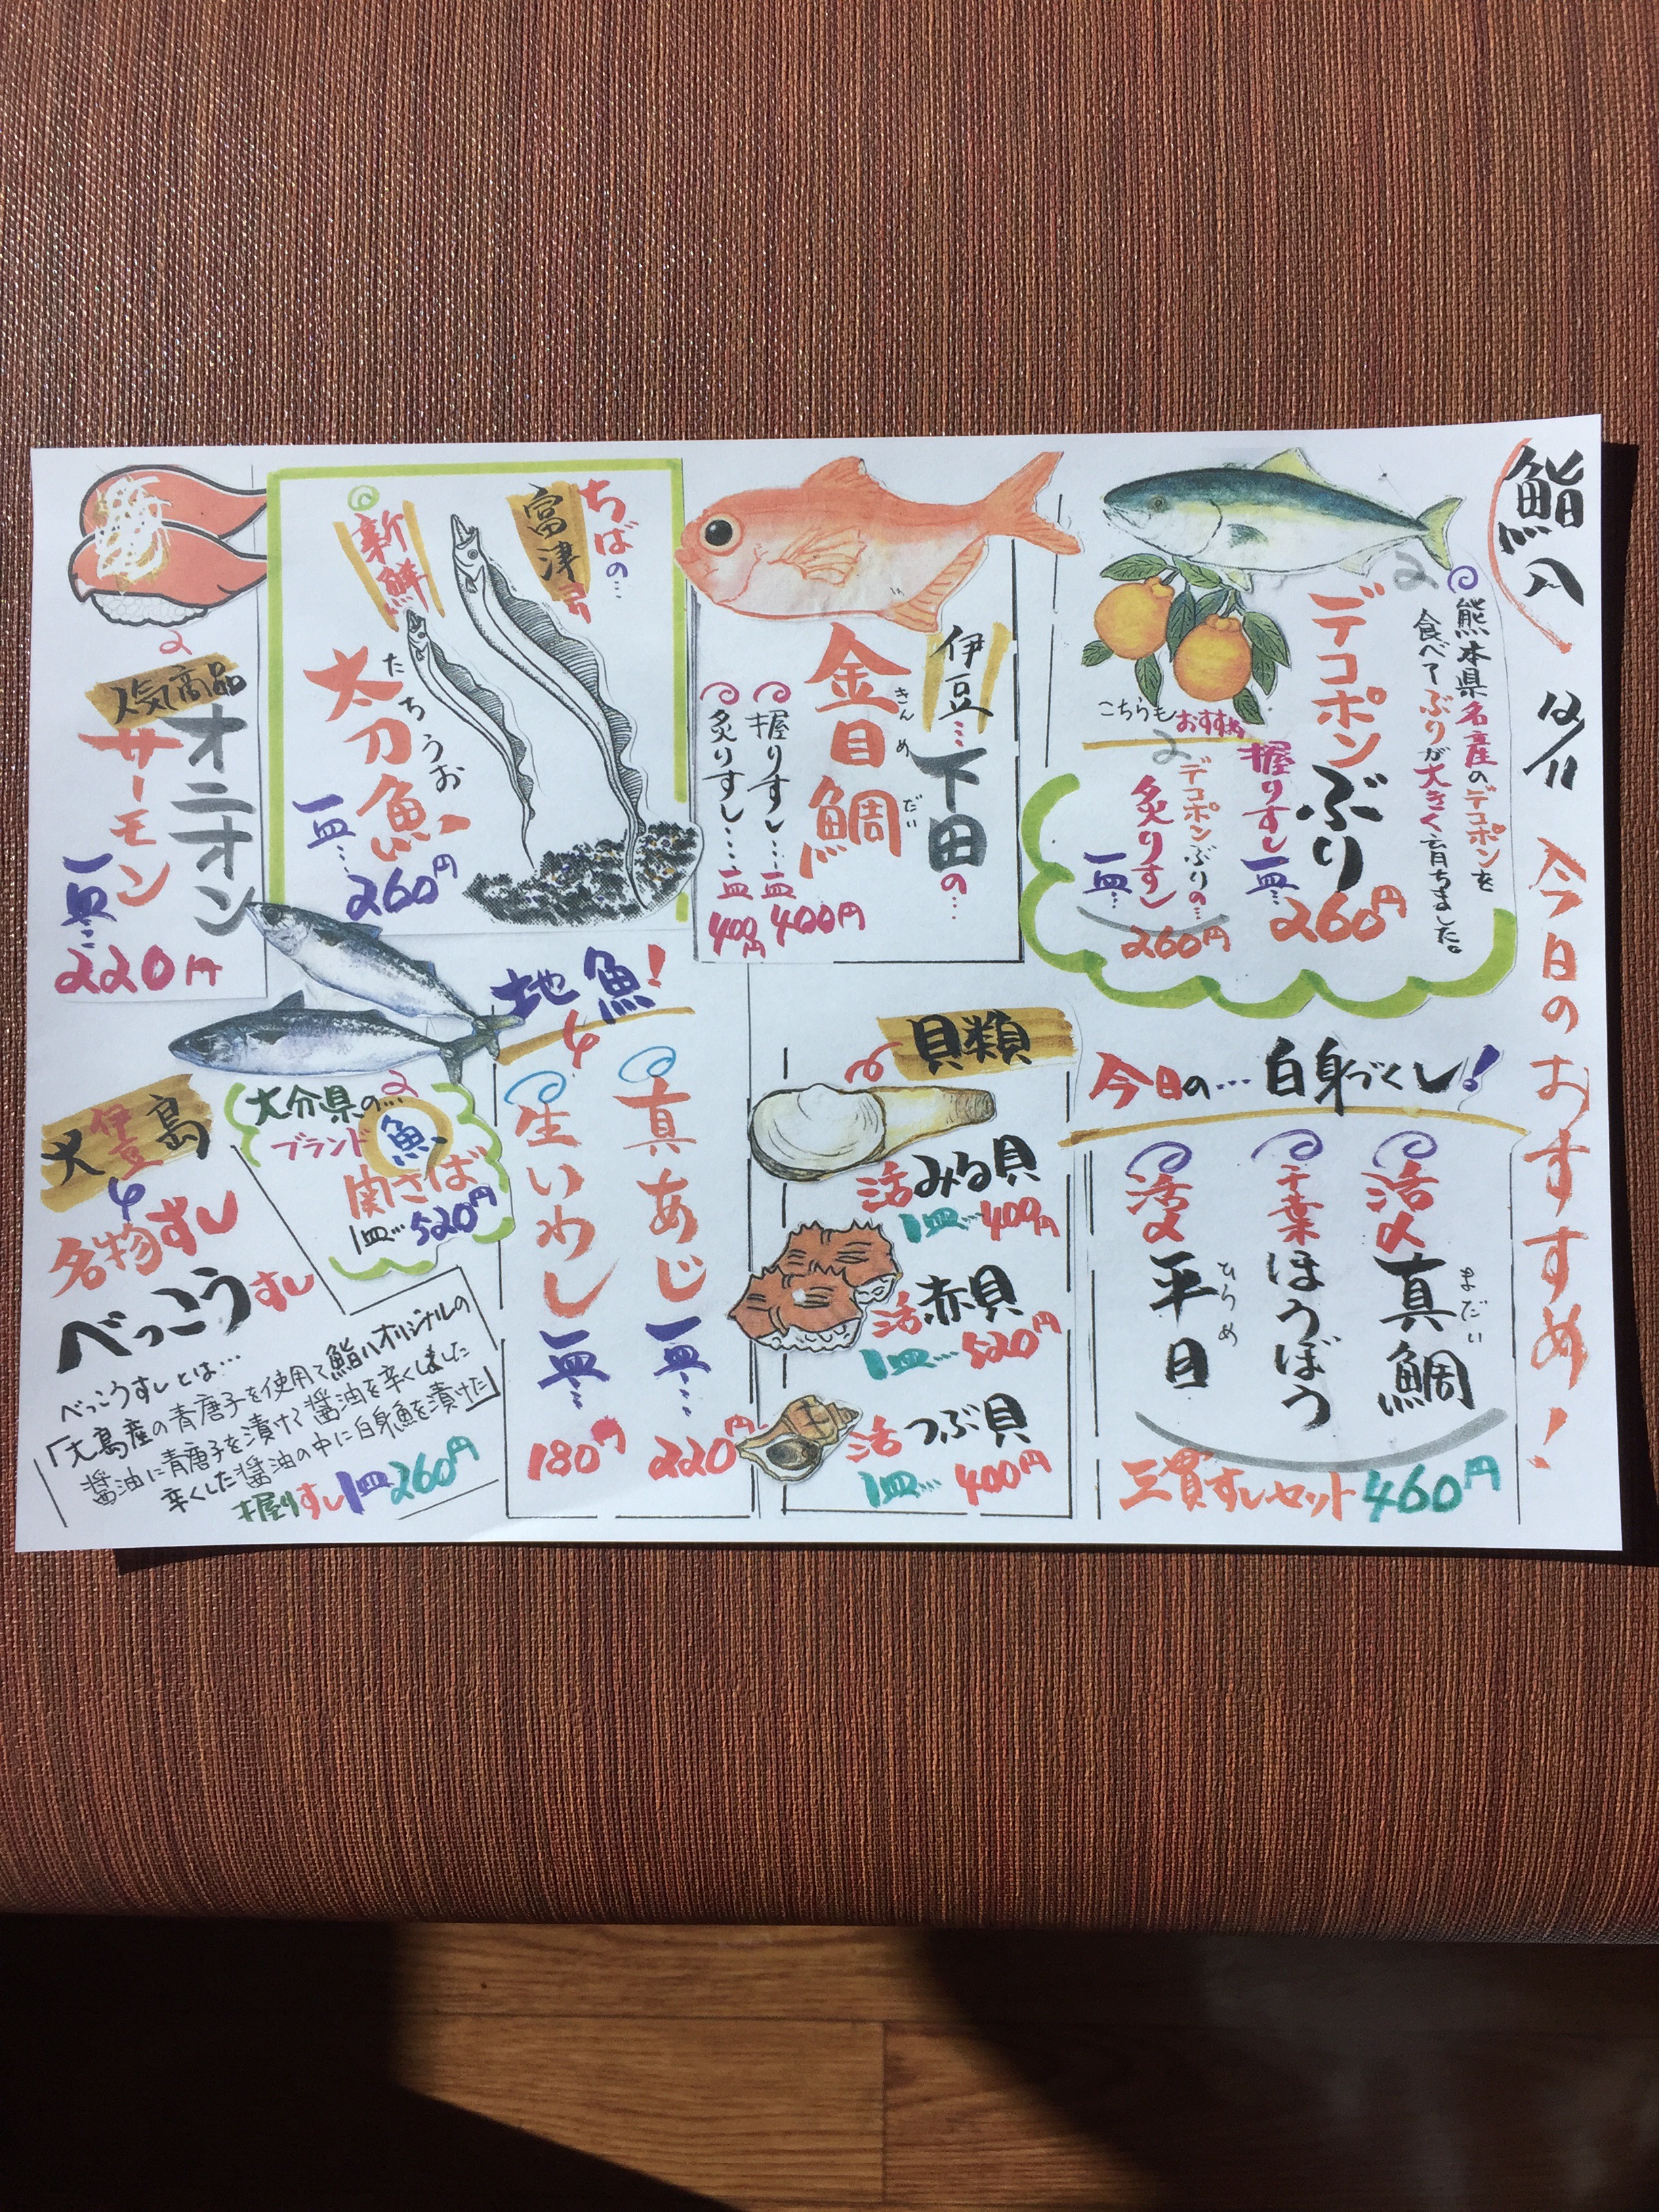 鮨八
12/11
今日のおすすめ!
熊本県名産のデコポンを
食べてぶりが大きく育ちました。
デコポンぶり
握りすし一皿…260円
こちらもおすすめ
デコポンぶりの…
炙りすし
一皿…260円
伊豆…下田の…
金目鯛
きんめだい
握りすし…一皿400円
炙りすし…一皿400円
ちばの…
富津より
新鮮
太刀魚
たちうお
一皿…260円
人気商品
オニオン
サーモン
一皿…220円
今日の…白身づくし!
活〆真鯛
まだい
千葉ほうぼう
活〆平目
ひらめ
三貫すしセット460円
貝類
活みる貝
1皿…400円
活赤貝
1皿…520円
活つぶ貝
1皿…400円
地魚!
真あじ
一皿…220円
生いわし
一皿…180円
大分県の…
ブランド魚
関さば
1皿…520円
伊豆大島
名物ずし
べっこうすし
べっこうすしとは…
「大島産の青唐子を使用て鮨八オリジナルの
醤油に青唐子を漬けて醤油を辛くしました
辛くした醤油の中に白身魚を漬けた」
握りすし1皿260円